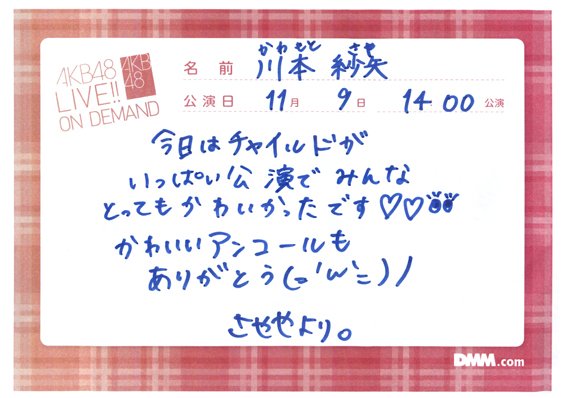 AKB48
LIVE!!
ON DEMAND
AKB
48
かわもと さや
名前 川本 紗矢
公演日 11月 9日 14 00 公演
今日はチャイルドが
いっぱい公演でみんな
とってもかわいかったです♡♡
かわいいアンコールも
ありがとう(=´ω`=)ノ
さややより。
DMM.com